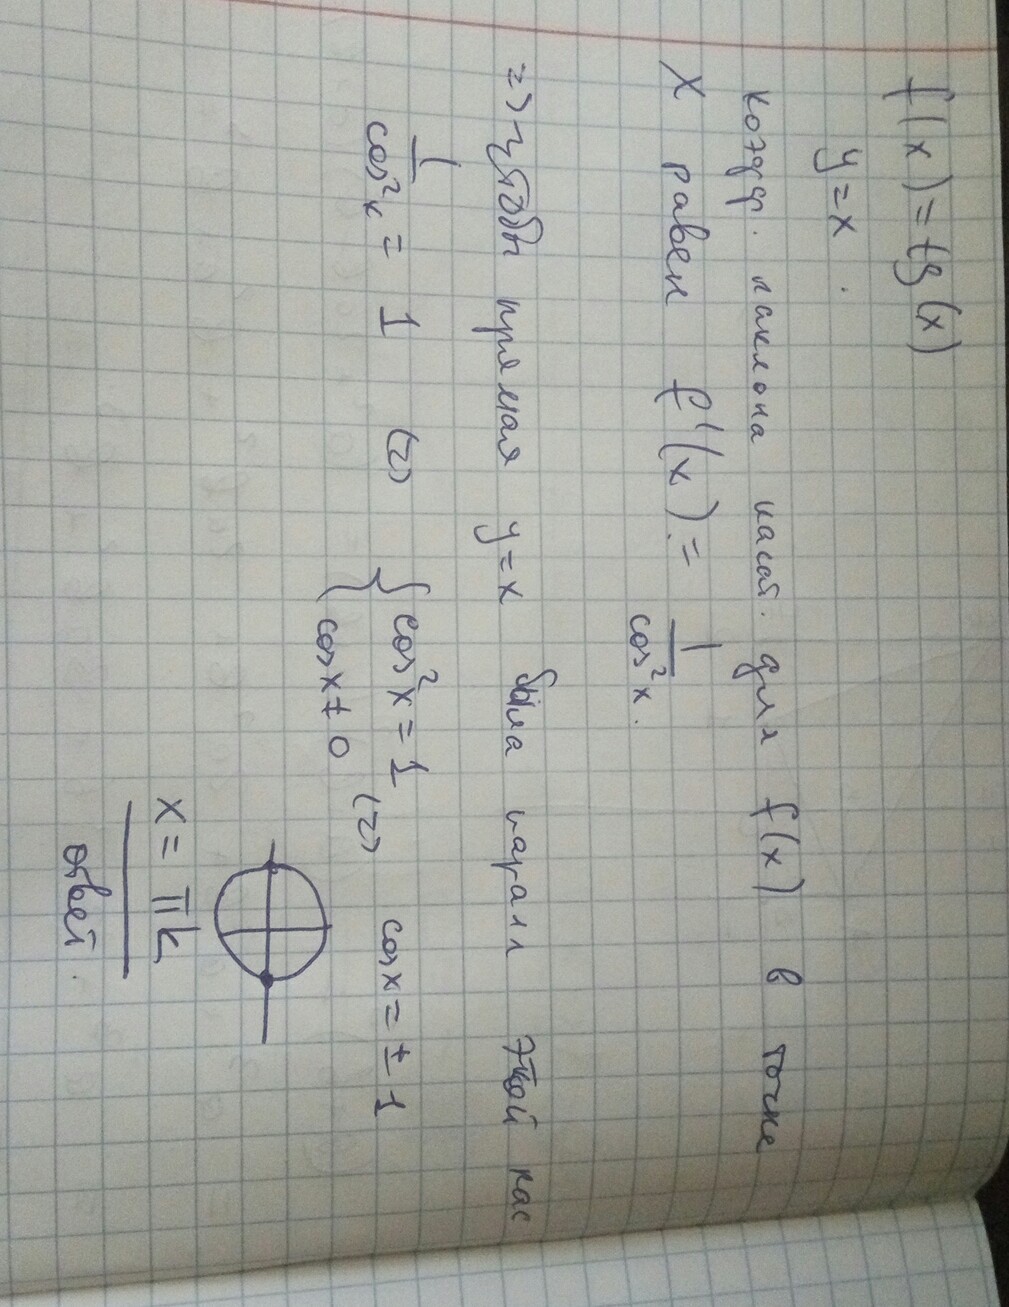 f(x) = tg(x)
y = x .
коэфф. наклона касат. для f(x) в точке
x равен f'(x) = 1/cos²x .
=> чтобы прямая y = x была паралл этой кас
1/cos²x = 1 (=) { cos²x = 1 (=) cos x = ± 1
cos x ≠ 0
x = πk
ответ.